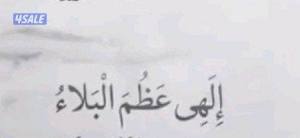 4SALE
إِلَهِى عَظُمَ الْبَلَاءُ